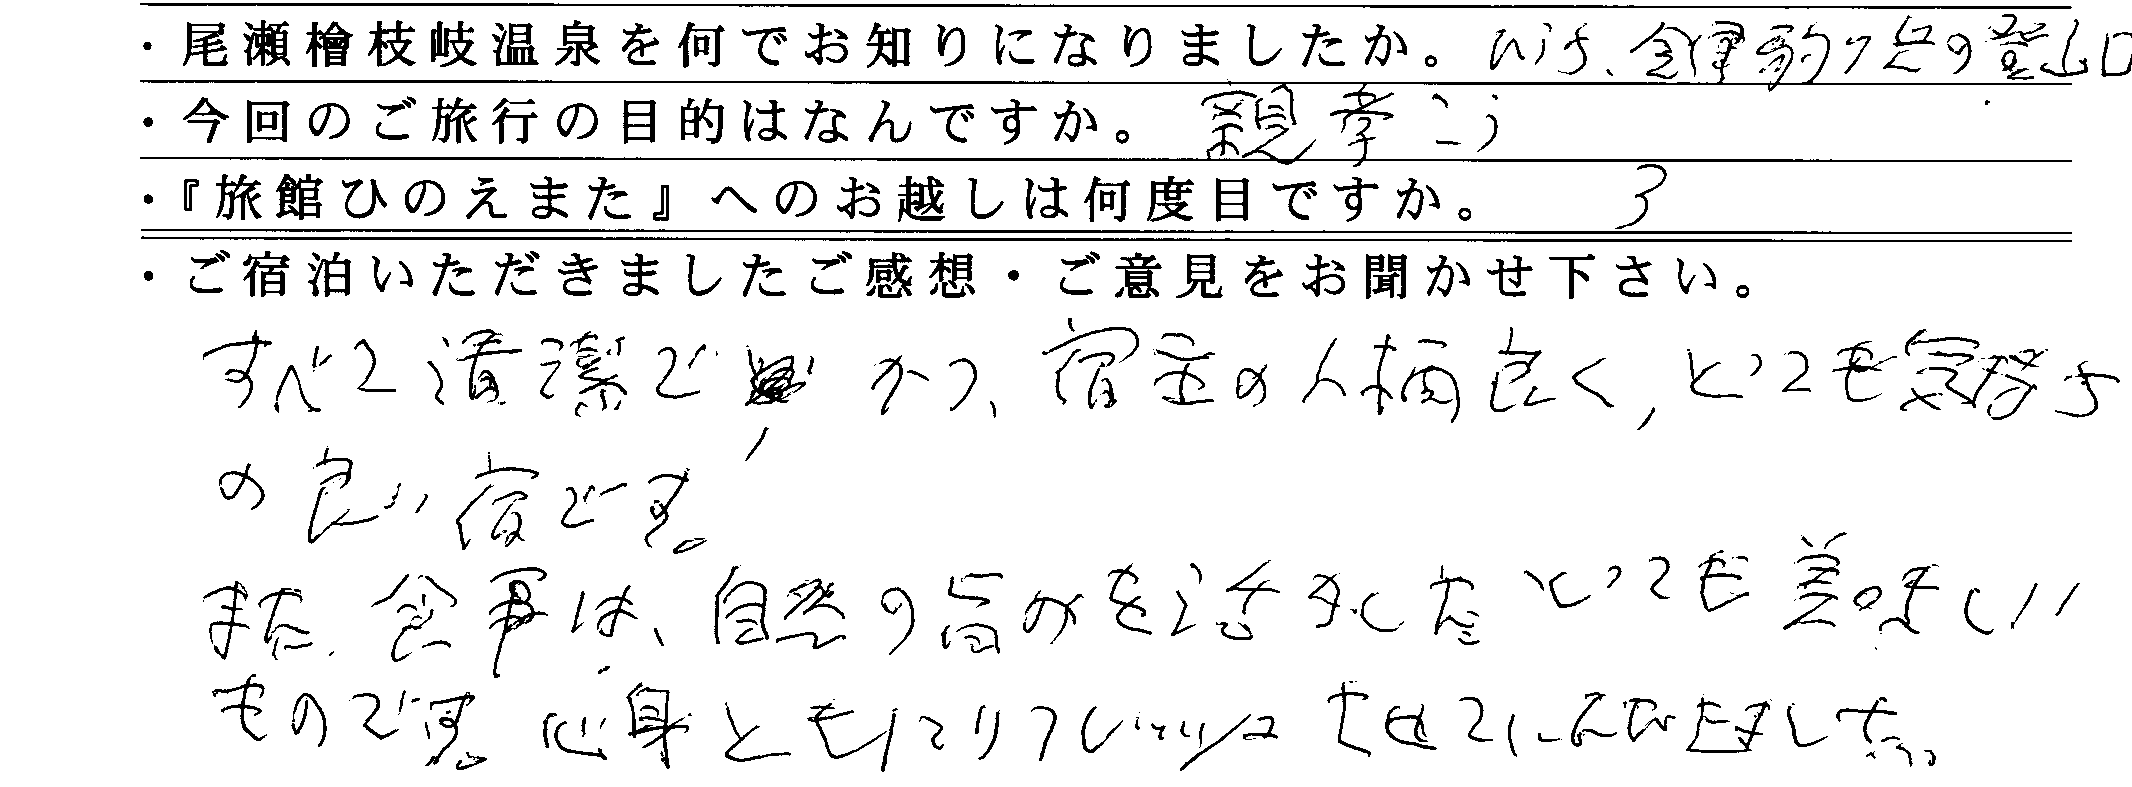 ・尾瀬檜枝岐温泉を何でお知りになりましたか。 会津駒ヶ岳の登山口
・今回のご旅行の目的はなんですか。 親孝こう
・『旅館ひのえまた』へのお越しは何度目ですか。 3
・ご宿泊いただきましたご感想・ご意見をお聞かせ下さい。
すべて清潔で、かつ、宿主の人柄良く、とっても気持ち
の良い宿です。
また、食事は、自然の旨みを活かした とっても美味しい
ものです。心身ともにリフレッシュさせていただきました。